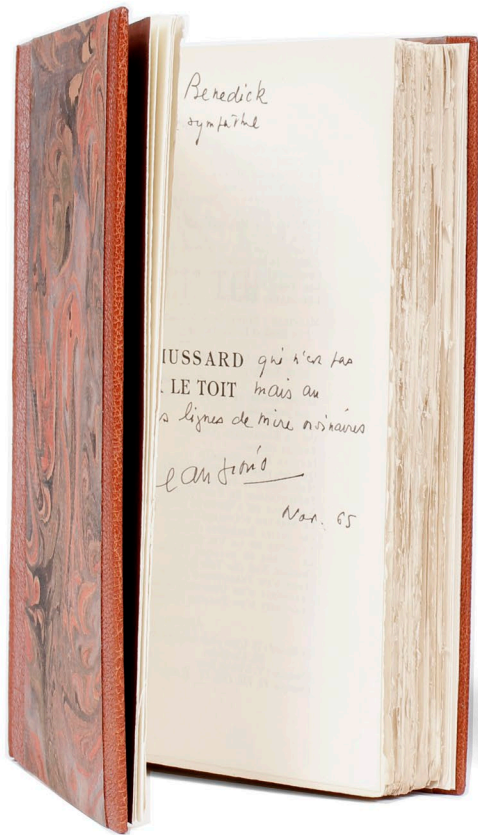 Benedick
sympathie
HUSSARD qui n'est pas
LE TOIT mais au
s lignes de mire ordinaires
ean Giono
Nov. 65